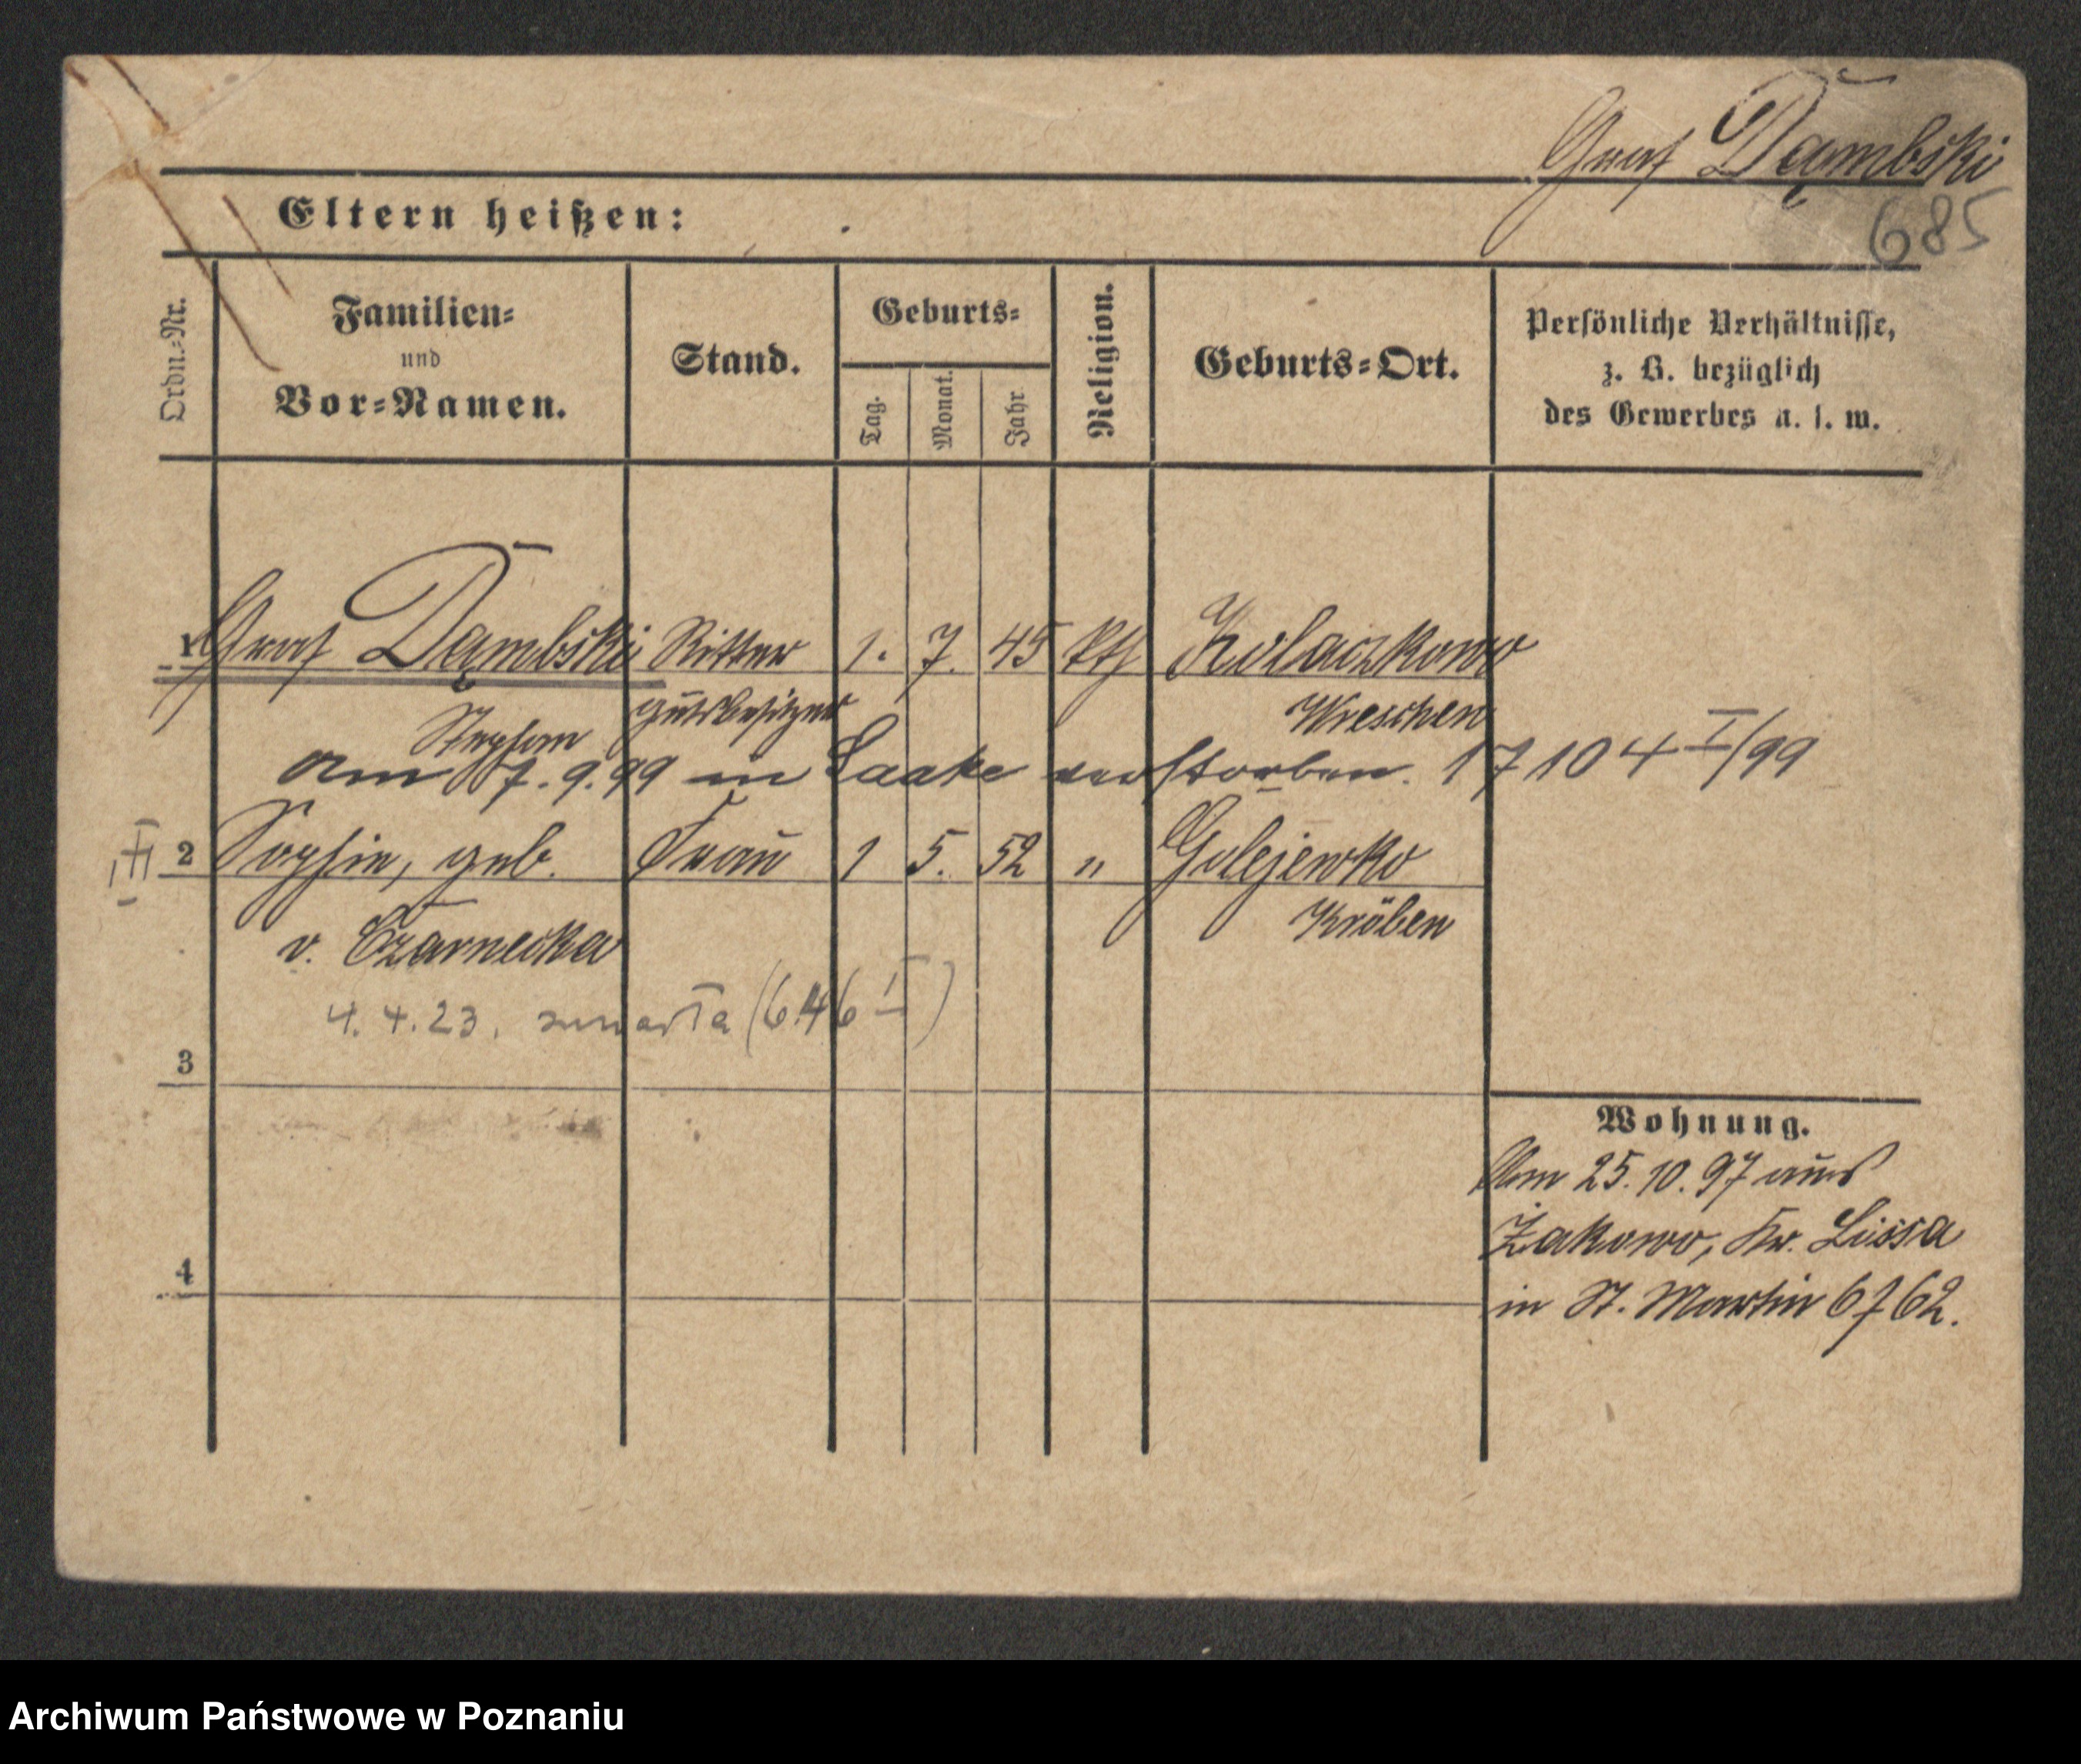 Graf Dąmbski
685
Eltern heißen:
Ordn.-Nr.
Familien-
und
Vor-Namen.
Stand.
Geburts-
Tag.
Monat.
Jahr
Religion.
Geburts-Ort.
Persönliche Verhältnisse,
z. B. bezüglich
des Gewerbes u. s. w.
1 Graf Dąmbski Ritter 1. 7. 45 kth Kolaczkowo
Stephan gutsbesitzer Wreschen
am 7.9.99 in Laake verstorben. 17104 I/99
III 2 Sophie, geb. Frau 1 5. 52 " Golejewko
v. Czarnecka Kröben
4.4.23. zmarła (646 I)
3
Wohnung.
Am 25.10.97 aus
Żakowo, Kr. Lissa
in St. Martin 67 62.
4
Archiwum Państwowe w Poznaniu